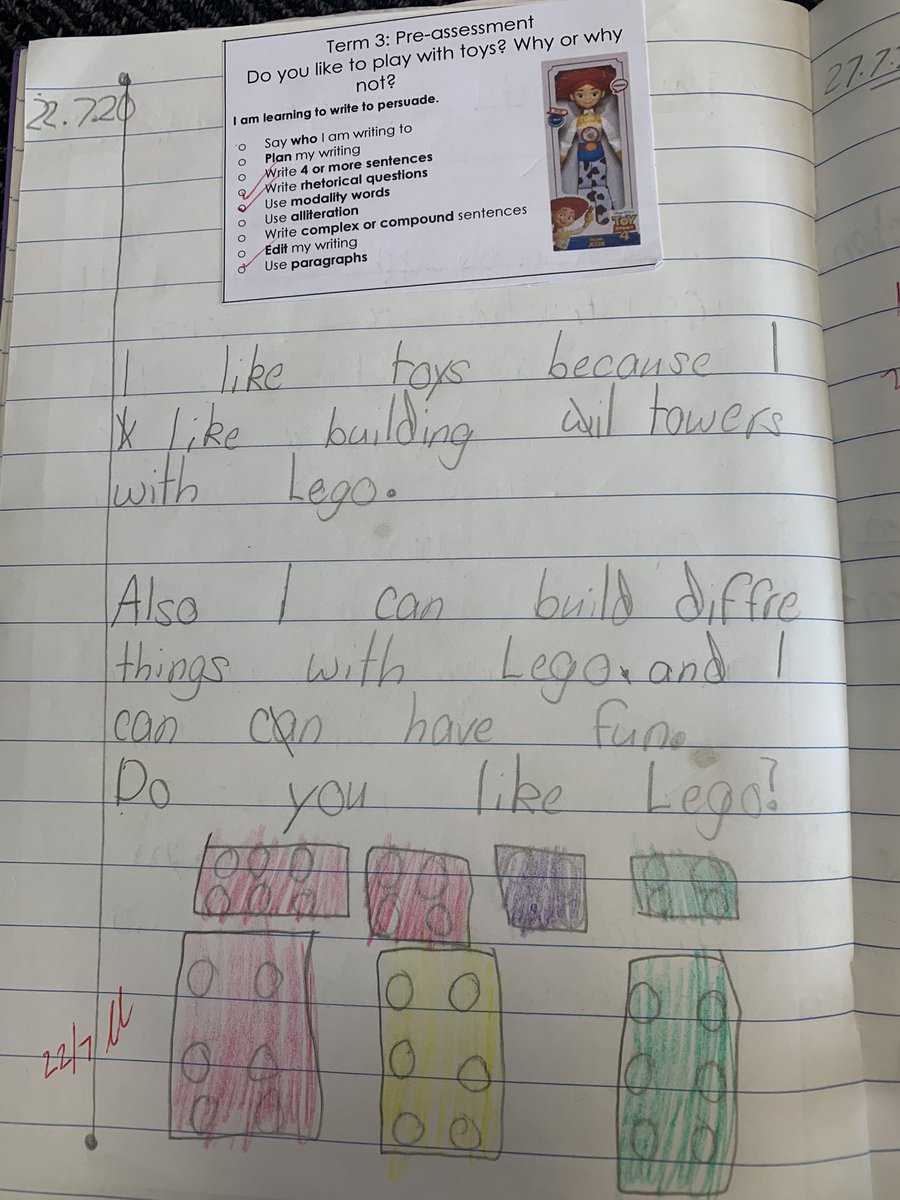 22.7.20
Term 3: Pre-assessment
Do you like to play with toys? Why or why
not?
I am learning to write to persuade.
Say who I am writing to
Plan my writing
Write 4 or more sentences
Write rhetorical questions
Use modality words
Use alliteration
Write complex or compound sentences
Edit my writing
Use paragraphs
TOY
STORY
4
27.7.
I like toys because I
like building towers
with Lego.
Also I can build diffre
things with Lego. and I
can can have fun.
Do you like Lego?
22/7